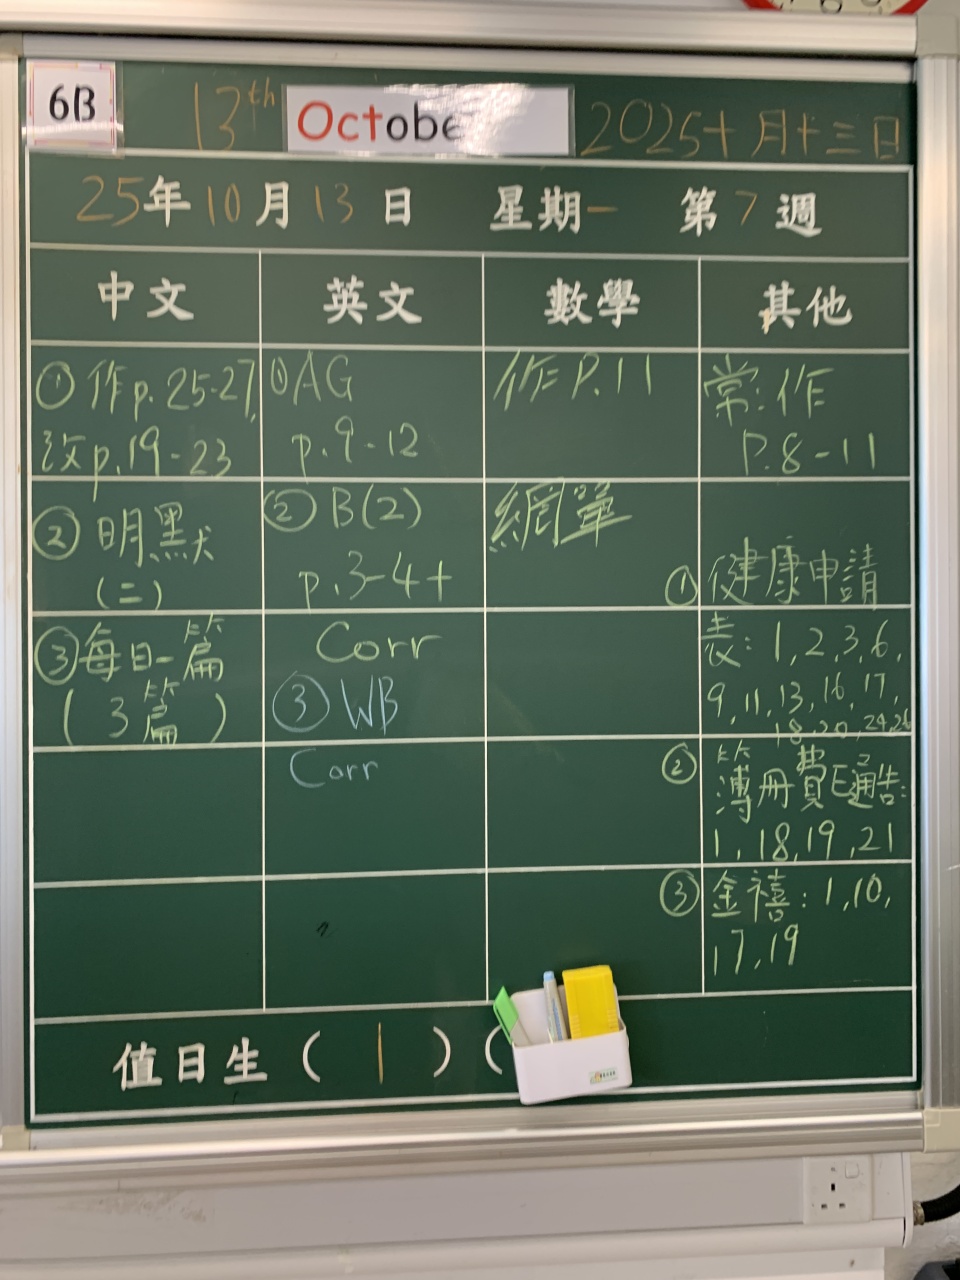 6B
13th October 2025十月十三日
25年10月13日 星期一 第7週
中文 英文 數學 其他
①作p.25-27,
改p.19-23
②明默
(二)
③每日一篇
(3篇)
①AG
p.9-12
②B(2)
p.3-4+
Corr
③WB
Corr
作P.11
網單
常:作
P.8-11
①健康申請
表:1,2,3,6,
9,11,13,16,17,
18,20,24,26
②簿冊費E通告:
1,18,19,21
③金禧:1,10,
17,19
值日生(1)(